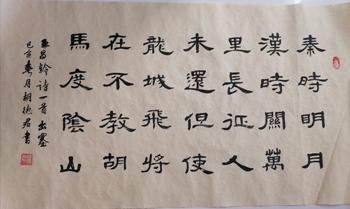 秦時明月
漢時關萬
里長征人
未還但使
龍城飛將
在不教胡
馬度陰山
王昌齡詩一首出塞
己亥春月胡德君書